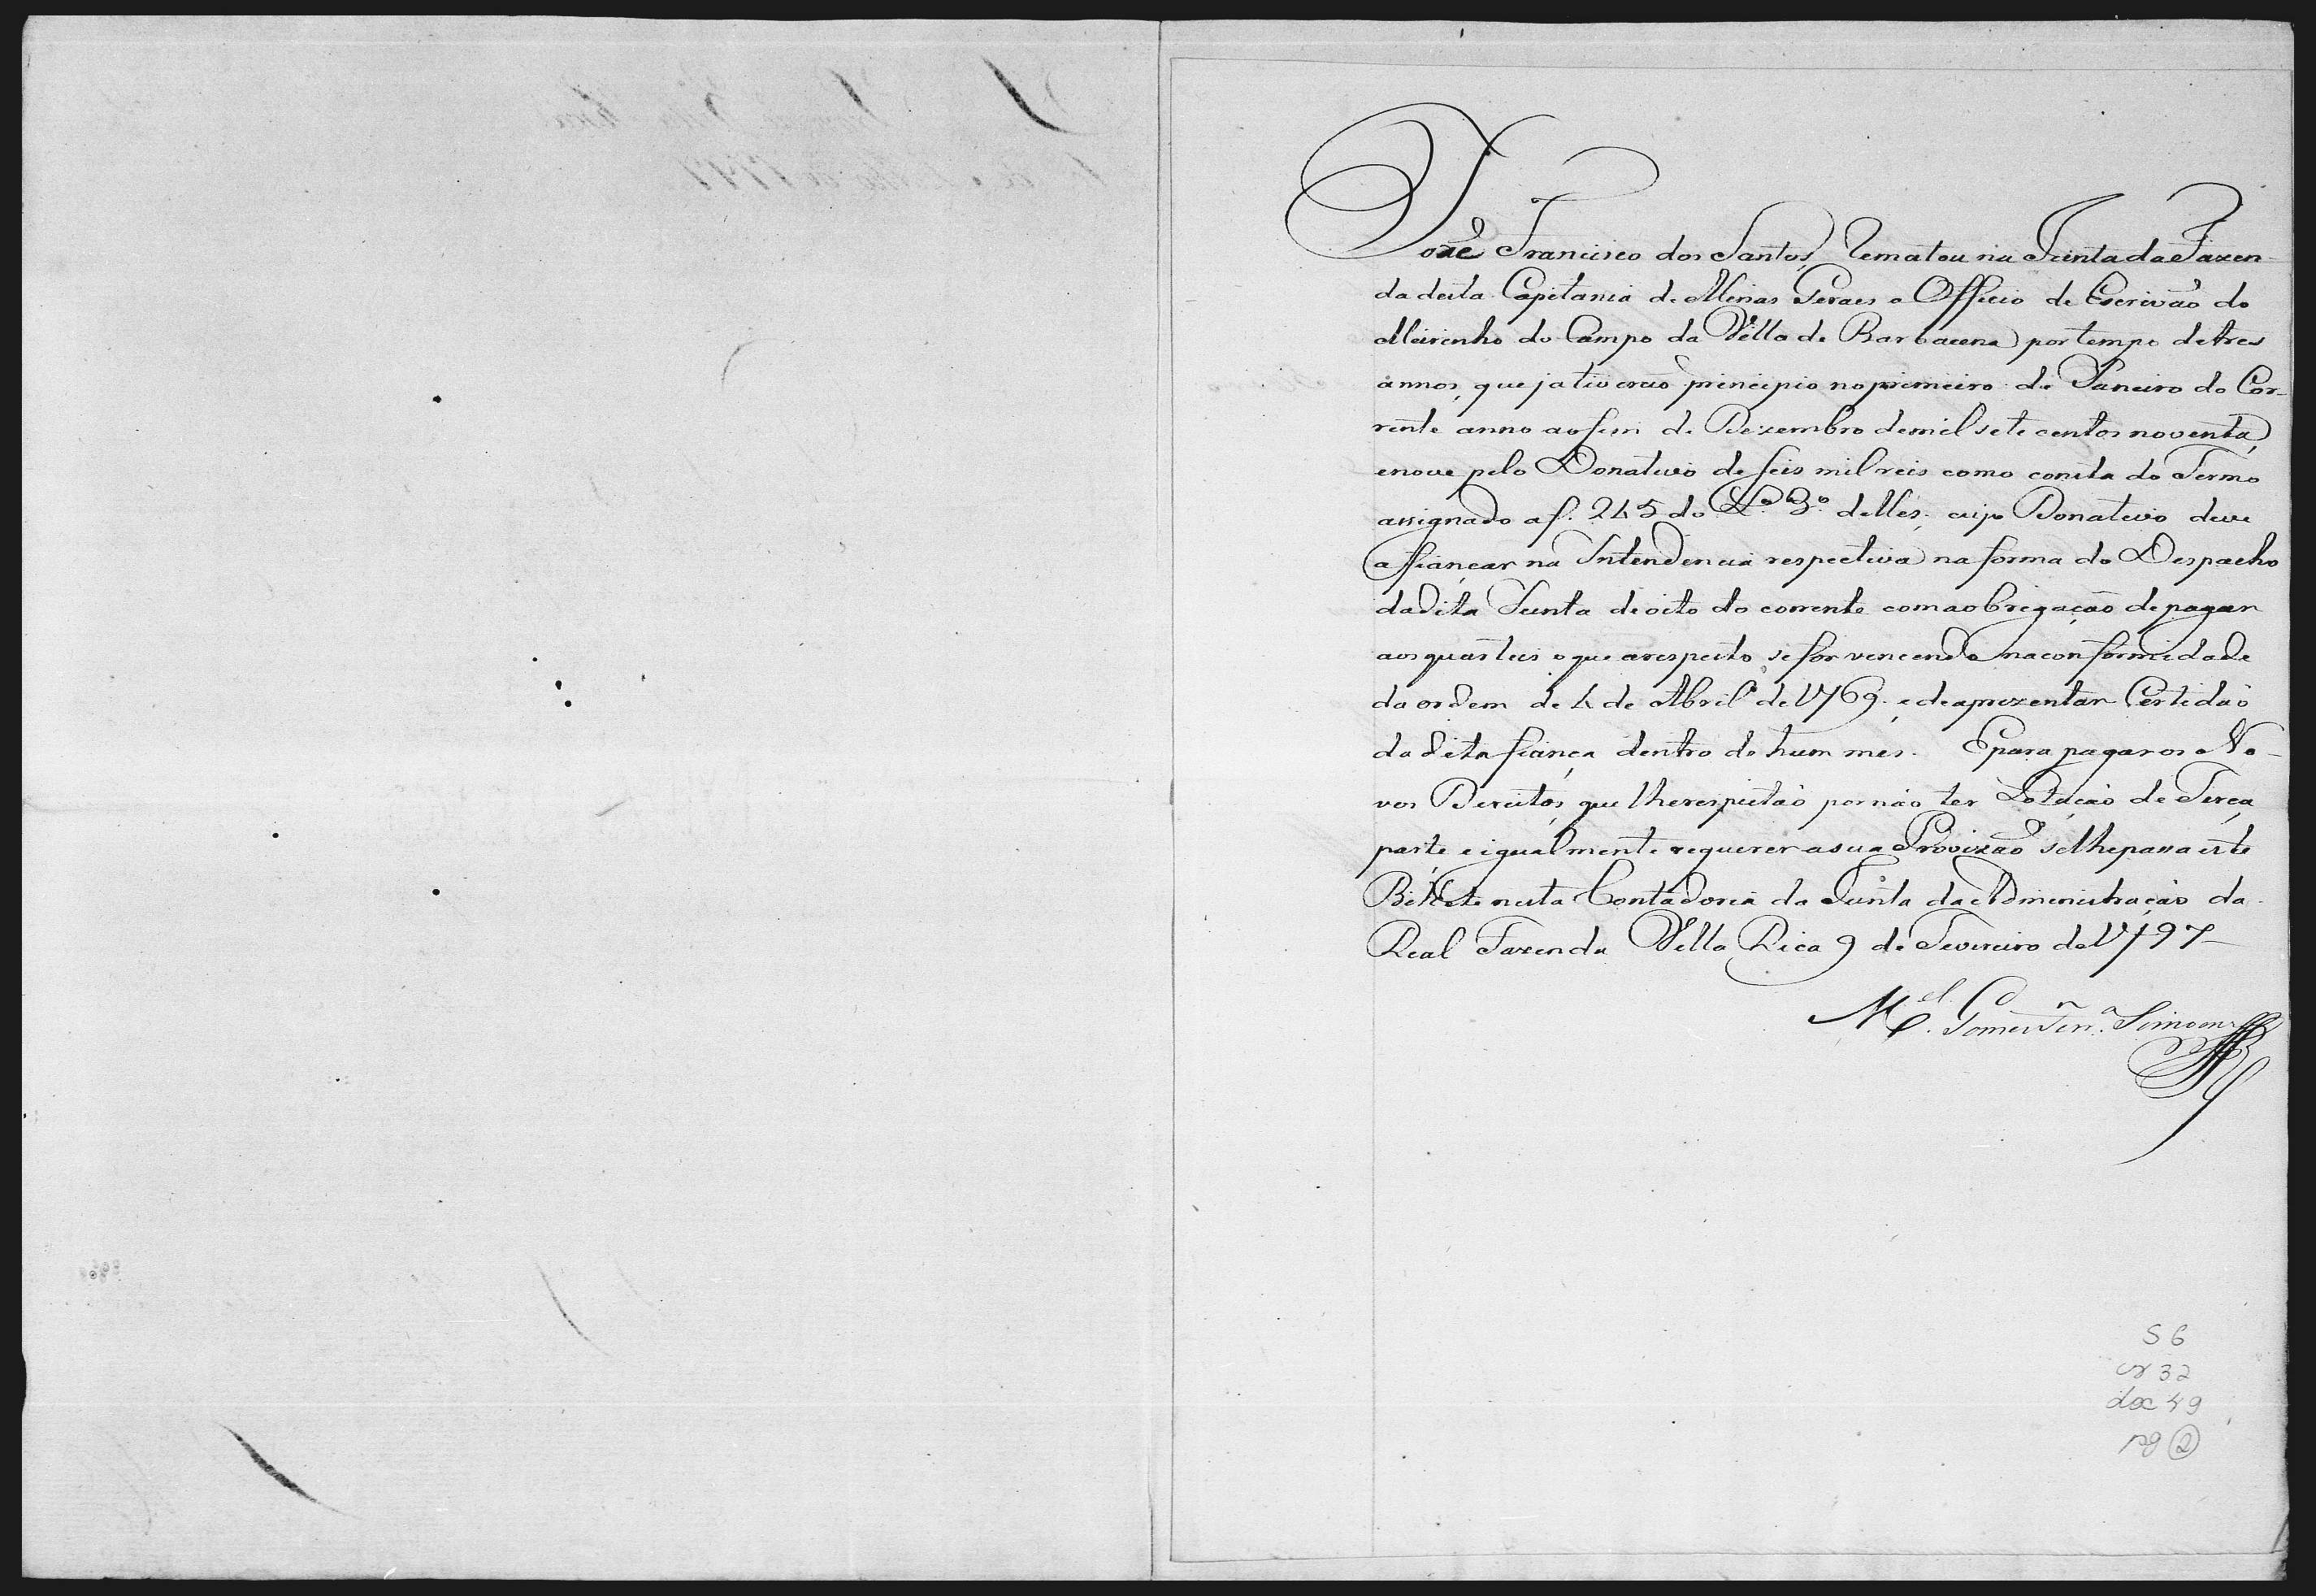 Joze Francisco dos Santos, rematou na Junta da Fazen-
da desta Capitania de Minas Geraes o Officio de Escrivaõ do
Meirinho do Campo da Villa de Barbacena por tempo de tres
annos, que já tiveraõ principio no primeiro de Janeiro do Cor-
rente anno ao fim de Dezembro de mil sete centos noventa,
e nove pelo Donativo de seis mil reis como consta do Termo
assignado a f. 245 do L.º 3.º delles, cujo Donativo deve
affiançar na Intendencia respectiva na forma do Despacho
da dita Junta de oito do corrente com a obrigaçaõ de pagar
aos quarteis o que a respeito se for vencendo na conformidade
da ordem de 4 de Abril de 1769. e de aprezentar Certidaõ
da dita fiança dentro de hum mes. E para pagar os No-
vos Direitos, que lhe respeitaõ por naõ ter Lotaçaõ de Terça
parte, e igualmente requerer a sua Provizaõ se lhe passa este
Bilhete nesta Contadoria da Junta da Administraçaõ da
Real Fazenda Villa Rica 9 de Fevereiro de 1797
M.el Gomes Simoens
S 6
cx 32
doc 49
pg 2